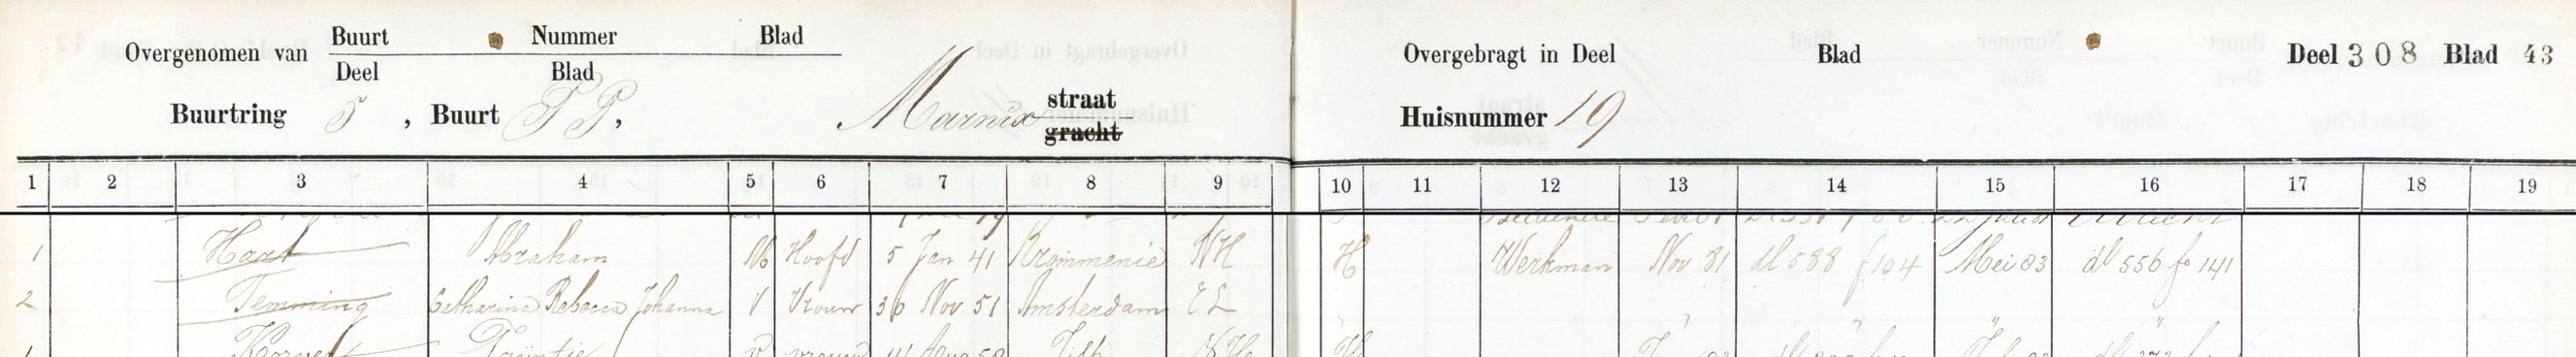 Overgenomen van Buurt Nummer Blad
Deel Blad
Buurtring 5, Buurt PP, Marnix straat
gracht
Overgebragt in Deel Blad Deel 308 Blad 43
Huisnummer 19
1 2 3 4 5 6 7 8 9 10 11 12 13 14 15 16 17 18 19
1 Hart Abraham M Hoofd 5 Jan 41 Krommenie NH H Werkman Nov 81 dl 588 f 104 Mei 83 dl 556 fo 141
2 Temming Catharina Rebecca Johanna V Vrouw 30 Nov 51 Amsterdam EL " " " "